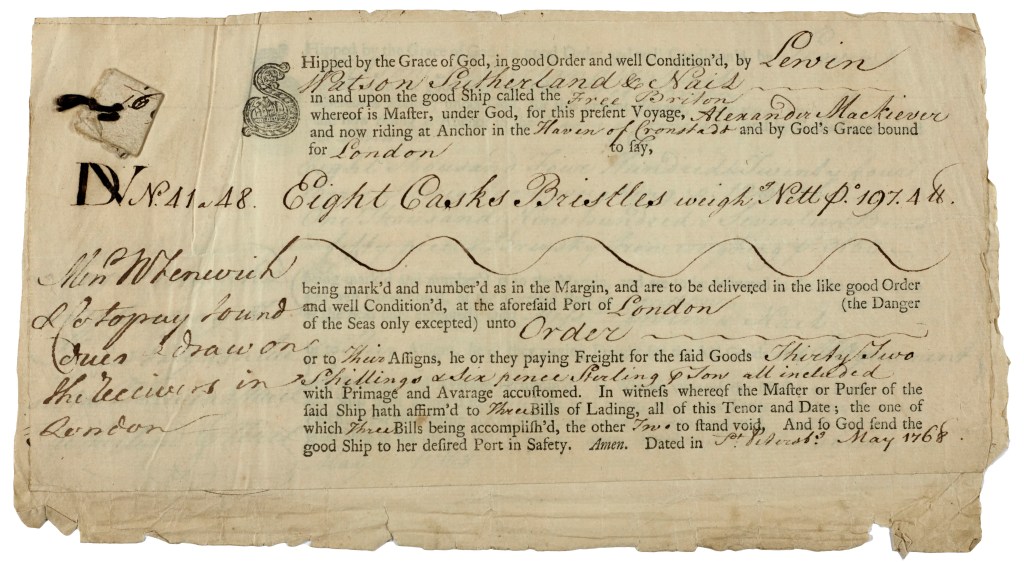 SHipped by the Grace of God, in good Order and well Condition'd, by Lewin
Watson Sutherland &
in and upon the good Ship called the Free Briton
whereof is Maſter, under God, for this preſent Voyage, Alexander Mackiever
and now riding at Anchor in the Haven of Cronstadt and by God's Grace bound
for London to ſay,
No. 41 a 48. Eight Casks Bristles weigh.g Nett Po. 197. 4 ℔.
being mark'd and number'd as in the Margin, and are to be delivered in the like good Order
and well Condition'd, at the aforeſaid Port of London (the Danger
of the Seas only excepted) unto Order
or to Their Aſſigns, he or they paying Freight for the ſaid Goods Thirty Two
Shillings & Six pence Sterling Ton all included
with Primage and Avarage accuſtomed. In witneſs whereof the Maſter or Purſer of the
ſaid Ship hath affirm'd to Three Bills of Lading, all of this Tenor and Date; the one of
which Three Bills being accompliſh'd, the other Two to ſtand void, And ſo God ſend the
good Ship to her deſired Port in Safety. Amen. Dated in St. Petersb.g May 1768.
& Co to pay Sound
dues & draw on
the Receivers in
London